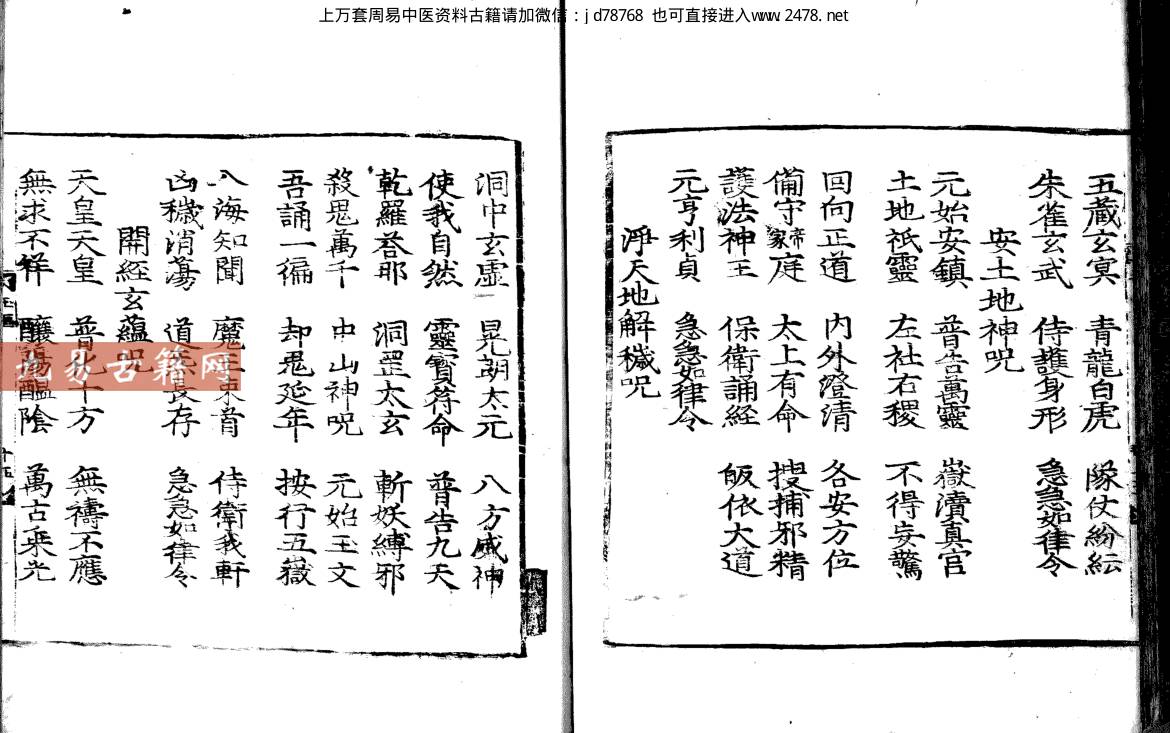 上万套周易中医资料古籍请加微信：jd78768 也可直接进入www.2478.net
五藏玄冥 青龍白虎 隊仗紛紜
朱雀玄武 侍護身形 急急如律令
安土地神咒
元始安鎮 普告萬靈 嶽瀆真官
土地祇靈 左社右稷 不得妄驚
回向正道 內外澄清 各安方位
備守家帝庭 太上有命 搜捕邪精
護法神王 保衛誦經 皈依大道
元亨利貞 急急如律令
淨天地解穢咒
洞中玄虛 晃朗太元 八方威神
使我自然 靈寶符命 普告九天
乾羅荅那 洞罡太玄 斬妖縛邪
殺鬼萬千 中山神咒 元始玉文
吾誦一徧 却鬼延年 按行五嶽
八海知聞 魔王束首 侍衛我軒
凶穢消蕩 道 長存 急急如律令
開經玄蘊咒
天皇天皇 普化十方 無禱不應
無求不祥 陰 萬古乘光
易古籍网